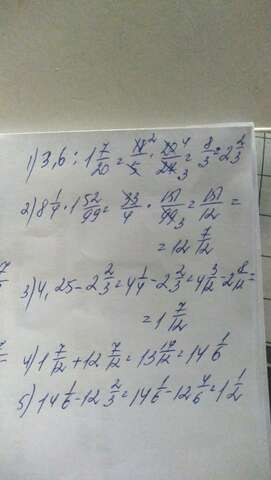 1) 3,6 : 1 7/20 = 18/5 · 20/27 = 8/3 = 2 2/3
2) 8 1/4 · 1 52/99 = 33/4 · 151/99 = 151/12 =
= 12 7/12
3) 4,25 - 2 2/3 = 4 1/4 - 2 2/3 = 4 3/12 - 2 8/12 =
= 1 7/12
4) 1 7/12 + 12 7/12 = 13 14/12 = 14 1/6
5) 14 1/6 - 12 2/3 = 14 1/6 - 12 4/6 = 1 1/2